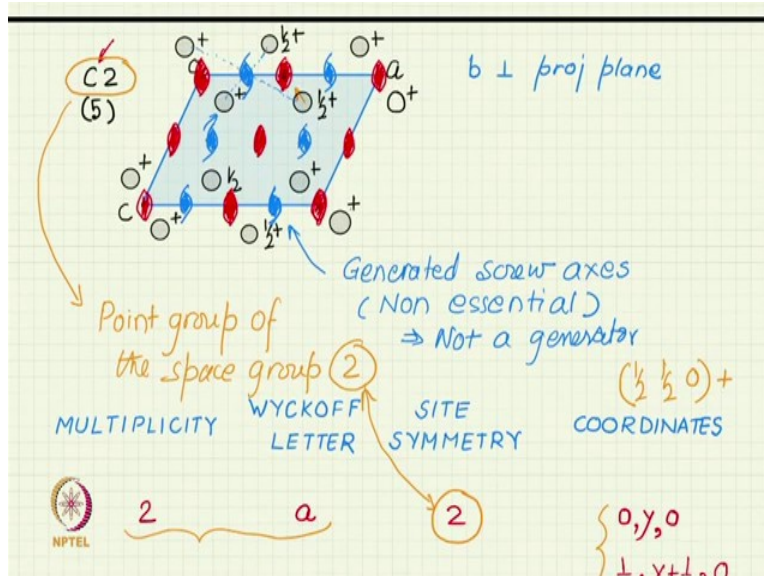 C2
(5)
+
½+
+
a
a
+
½+
O+
+
½
+
C
+
½+
+
b ⊥ proj plane
Generated screw axes
(Non essential)
⇒ Not a generator
Point group of
the space group 2
(½ ½ 0)+
MULTIPLICITY
WYCKOFF
LETTER
SITE
SYMMETRY
COORDINATES
2 a 2 0,y,0
NPTEL